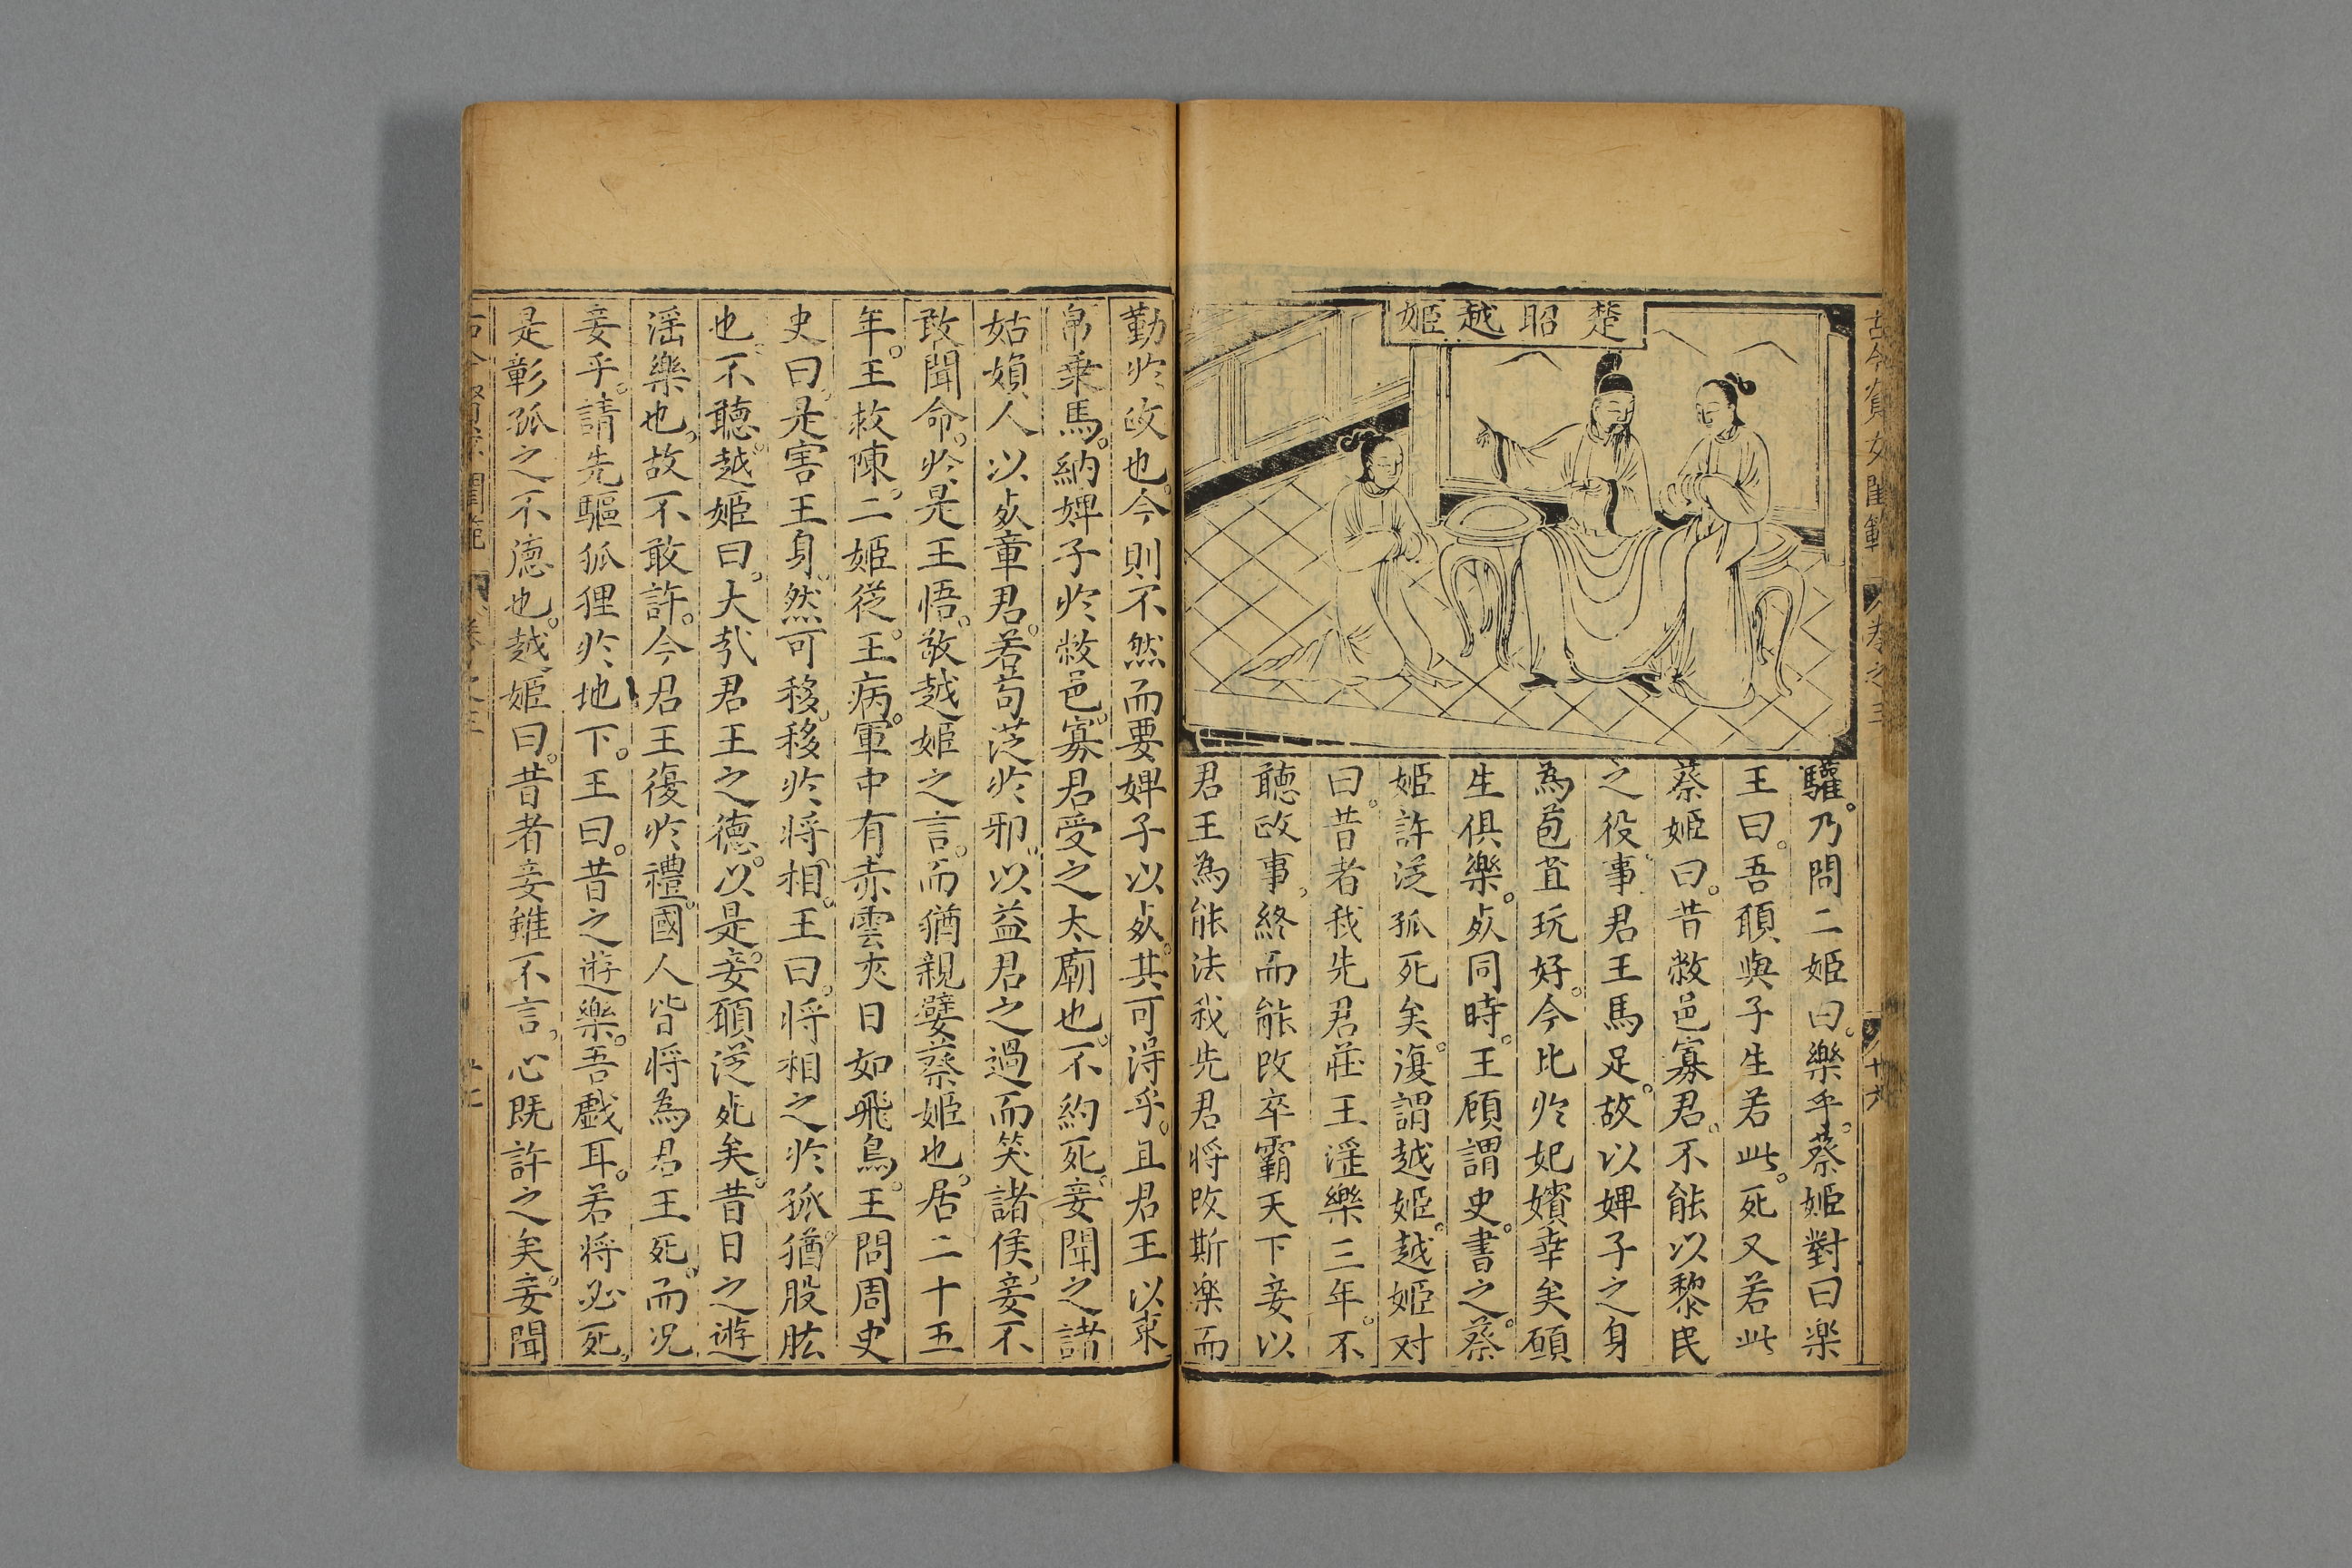 古今賢女閨範 卷之三 十九
楚昭越姬
驩乃問二姬曰樂乎蔡姬對曰楽
王曰吾頋與子生若此死又若此
蔡姬曰昔敝邑寡君不能以黎民
之役事君王馬足故以婢子之身
為苞苴玩好今比扵妃嬪幸矣頋
生俱樂死同時王顧謂史書之蔡
姬許從孤死矣復謂越姬越姬对
曰昔者我先君莊王滛樂三年不
聽政事終而能改卒霸天下妾以
君王為能法我先君将改斯楽而
勤扵政也今則不然而要婢子以死其可得乎且君王以束
帛乗馬納婢子扵敝邑寡君受之太廟也不約死妾聞之諸
姑娣人以死章君若苟從扵邪以益君之過而笑諸侯妾不
敢聞命扵是王悟敬越姬之言而猶親嬖蔡姬也居二十五
年王救陳二姬從王病軍中有赤雲夾日如飛鳥王問周史
史曰是害王身然可移移扵将相王曰将相之扵孤猶股肱
也不聽越姬曰大㢤君王之德以是妾頋從死矣昔日之遊
滛樂也故不敢許今君王復扵禮國人皆将為君王死而况
妾乎請先驅狐狸扵地下王曰昔之遊樂吾戯耳若将必死
是彰孤之不德也越姬曰昔者妾雖不言心既許之矣妾聞